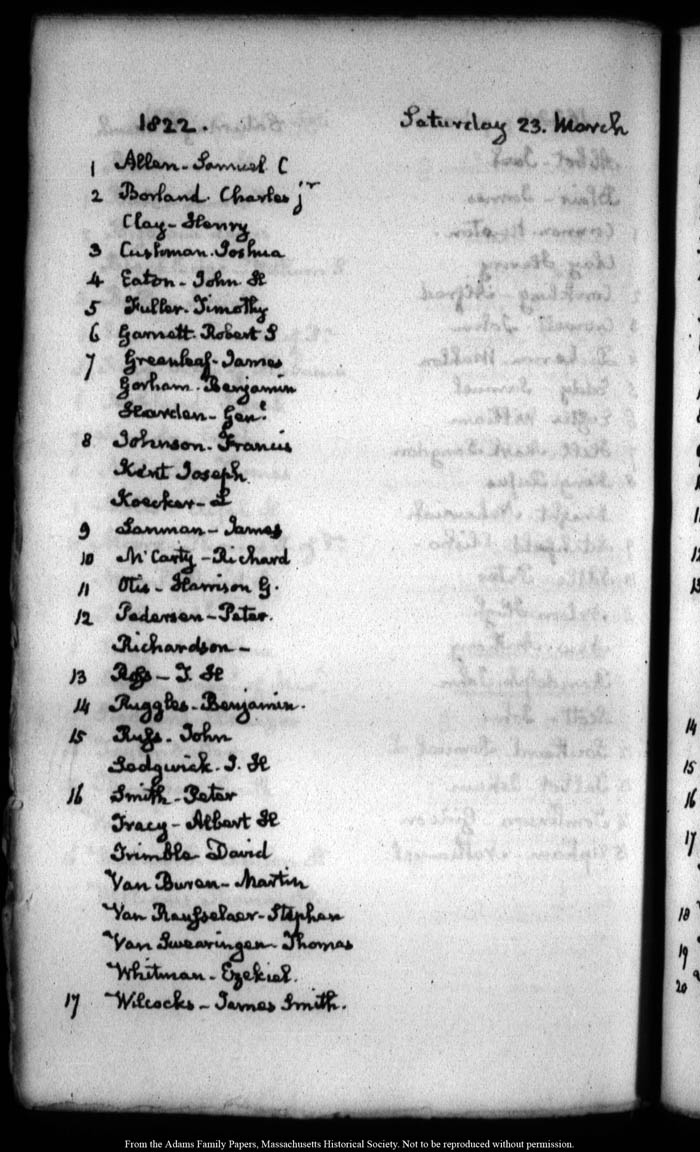 1822. Saturday 23. March
1 Allen - Samuel C
2 Borland. Charles jr
Clay - Henry
3 Cushman. Joshua
4 Eaton - John H
5 Fuller. Timothy
6 Garnett. Robert S
7 Greenleaf - James
Gorham. Benjamin
Harden - Genl
8 Johnson. Francis
Kent Joseph.
Koecker - L
9 Lanman - James
10 McCarty - Richard
11 Otis - Harrison G.
12 Pedersen - Peter.
Richardson -
13 Ross - T. H
14 Ruggles - Benjamin.
15 Russ. John
Sedgwick. T. H
16 Smith - Peter
Tracy - Albert H
Trimble David
Van Buren - Martin
Van Rensselaer - Stephen
Van Swearingen - Thomas
Whitman - Ezekiel.
17 Wilcocks - James Smith.
14
15
16
17
18
19
20
From the Adams Family Papers, Massachusetts Historical Society. Not to be reproduced without permission.